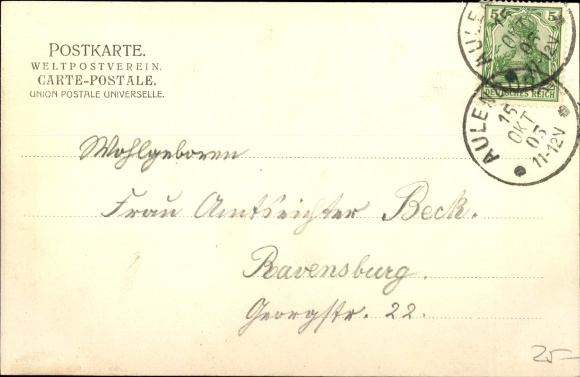 POSTKARTE.
WELTPOSTVEREIN.
CARTE-POSTALE.
UNION POSTALE UNIVERSELLE.
5 5
DEUTSCHES REICH
15
OKT
05
11-12V
AULEN
15
OKT
05
11-12V
Wohlgeboren
Frau Amtsrichter Beck.
Ravensburg.
Georgstr. 22.
25-